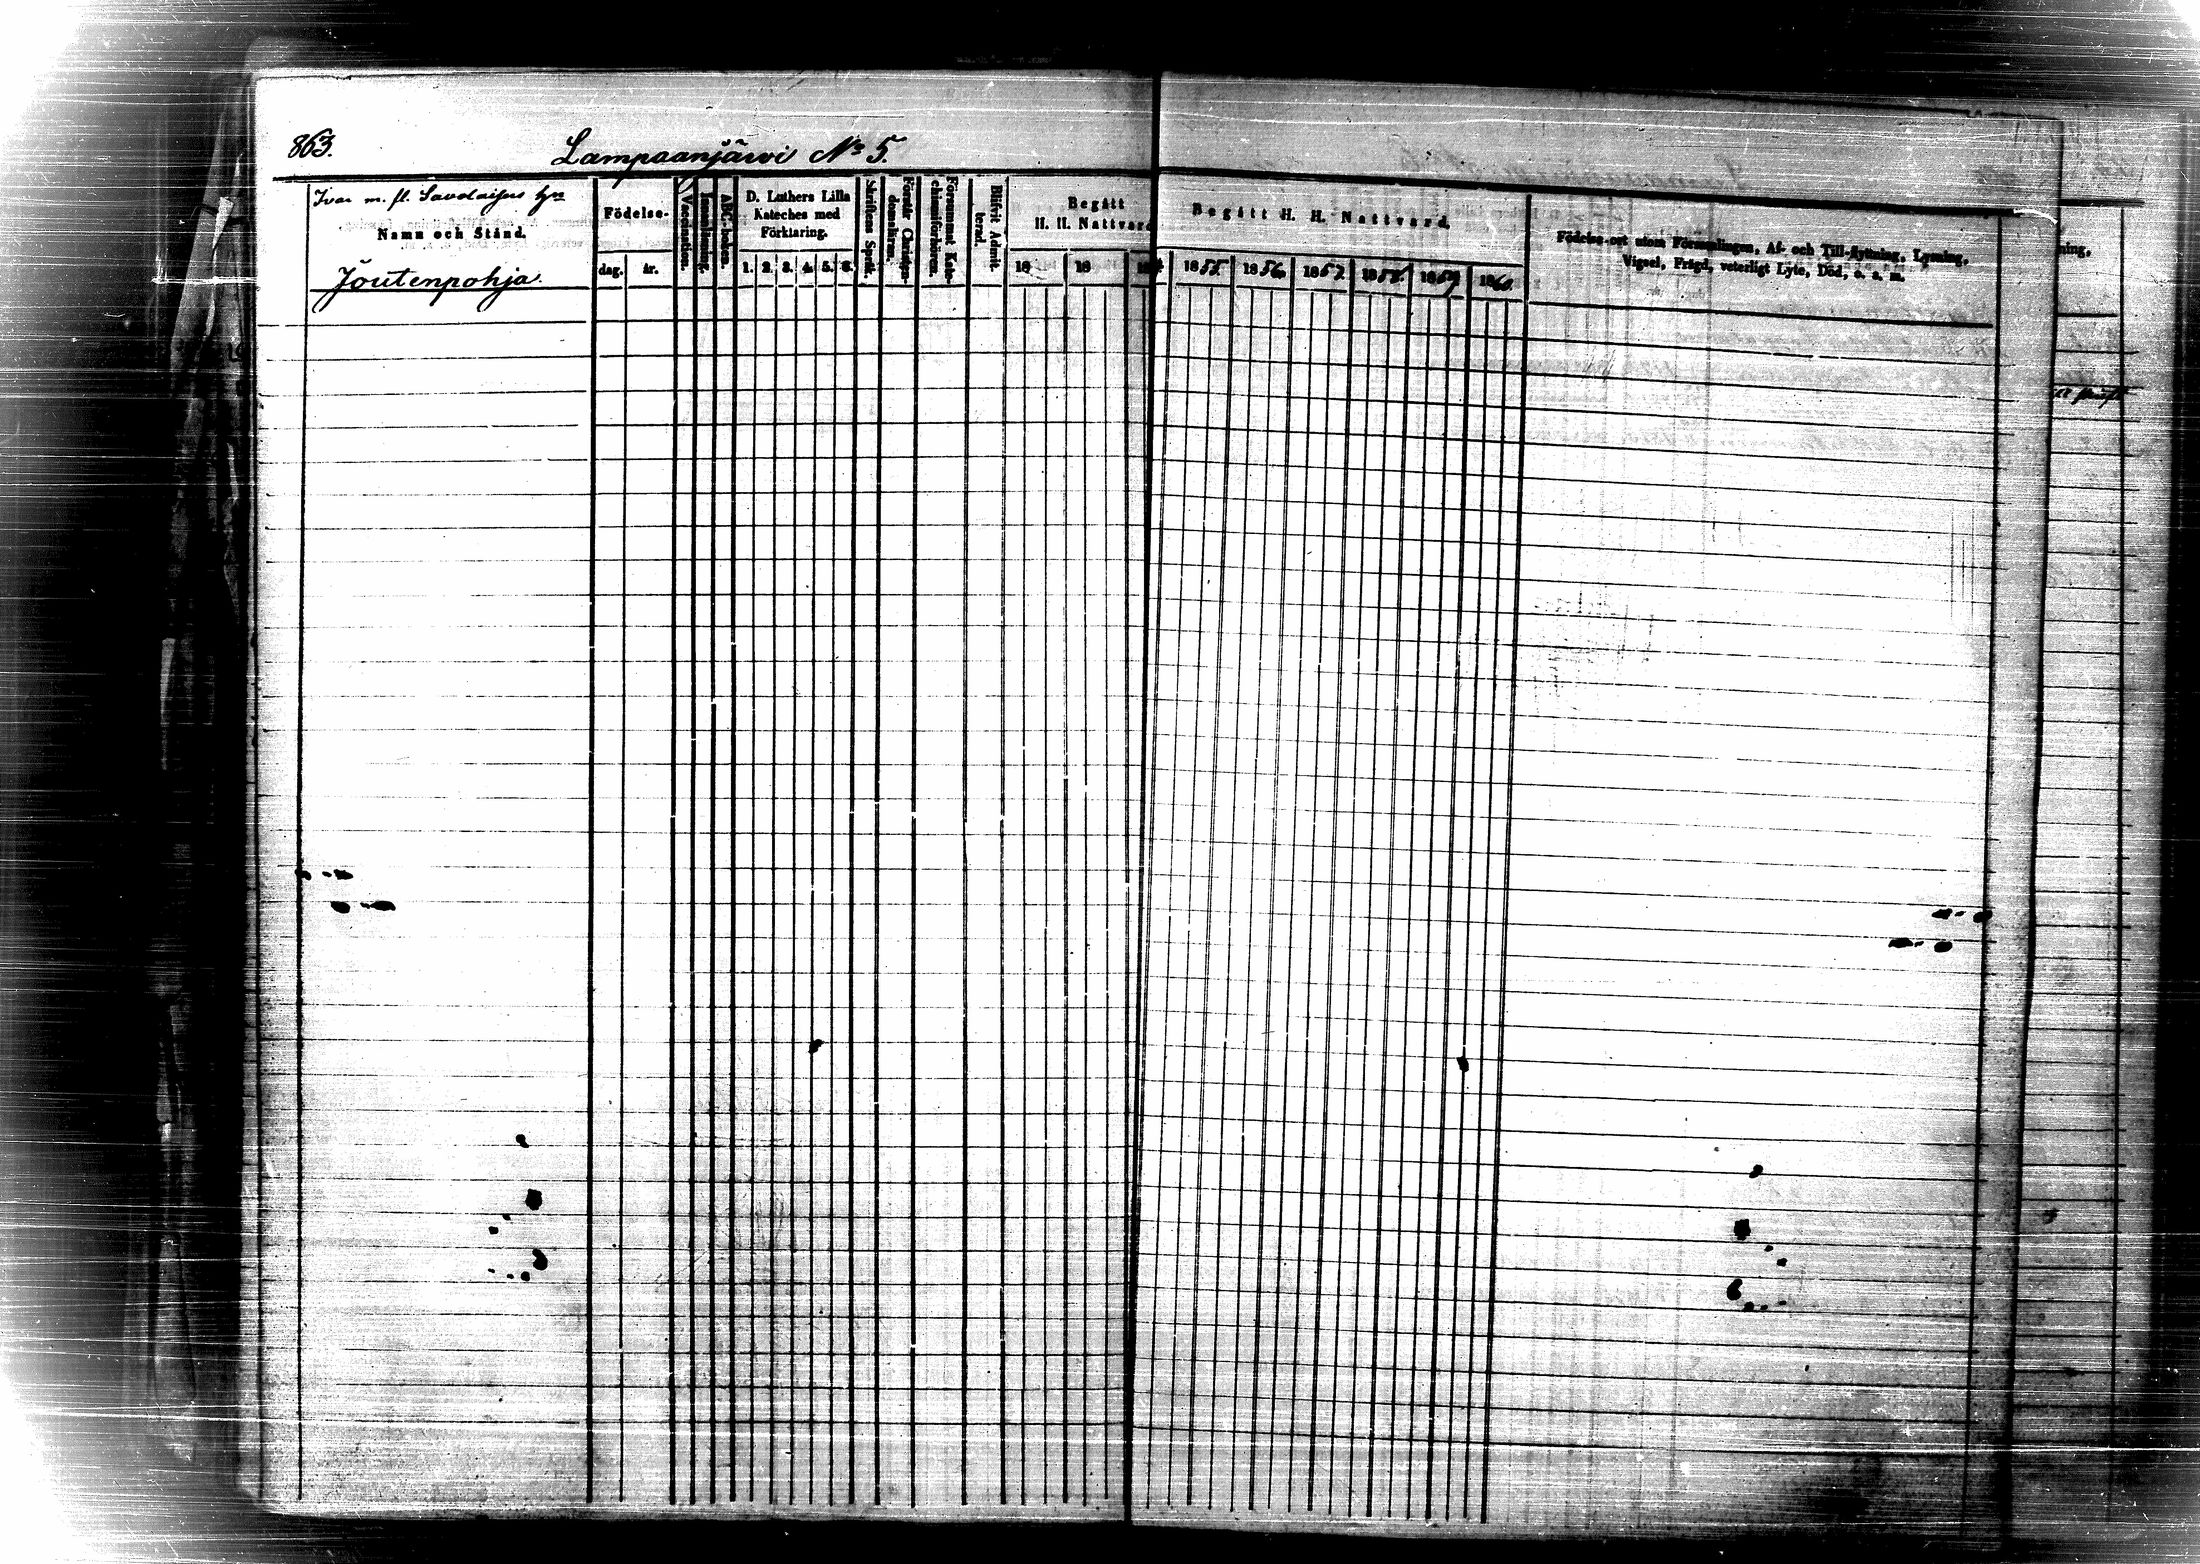 863.
Lampaanjärvi No 5.
Ivar m. fl. Savolaisers hn
Namn och Stånd.
Joutenpohja.
Födelse-
dag. år.
Vaccination.
Innanläsning.
ABC-boken.
D. Luthers Lilla
Kateches med
Förklaring.
1. 2. 3. 4. 5. 6.
Skriftens Språk.
Förstår Christen-
domsläran.
Försummat Kate-
chismiförhören.
Blifvit Admit-
terad.
Begått
H. H. Nattvard
18 18
Begått H. H. Nattvard.
1855. 1856. 1857. 1858. 1859. 1860.
Födelse-ort utom Församlingen, Af- och Till-flyttning, Lysning,
Vigsel, Frägd, veterligt Lyte, Död, o. s. m.
ning,